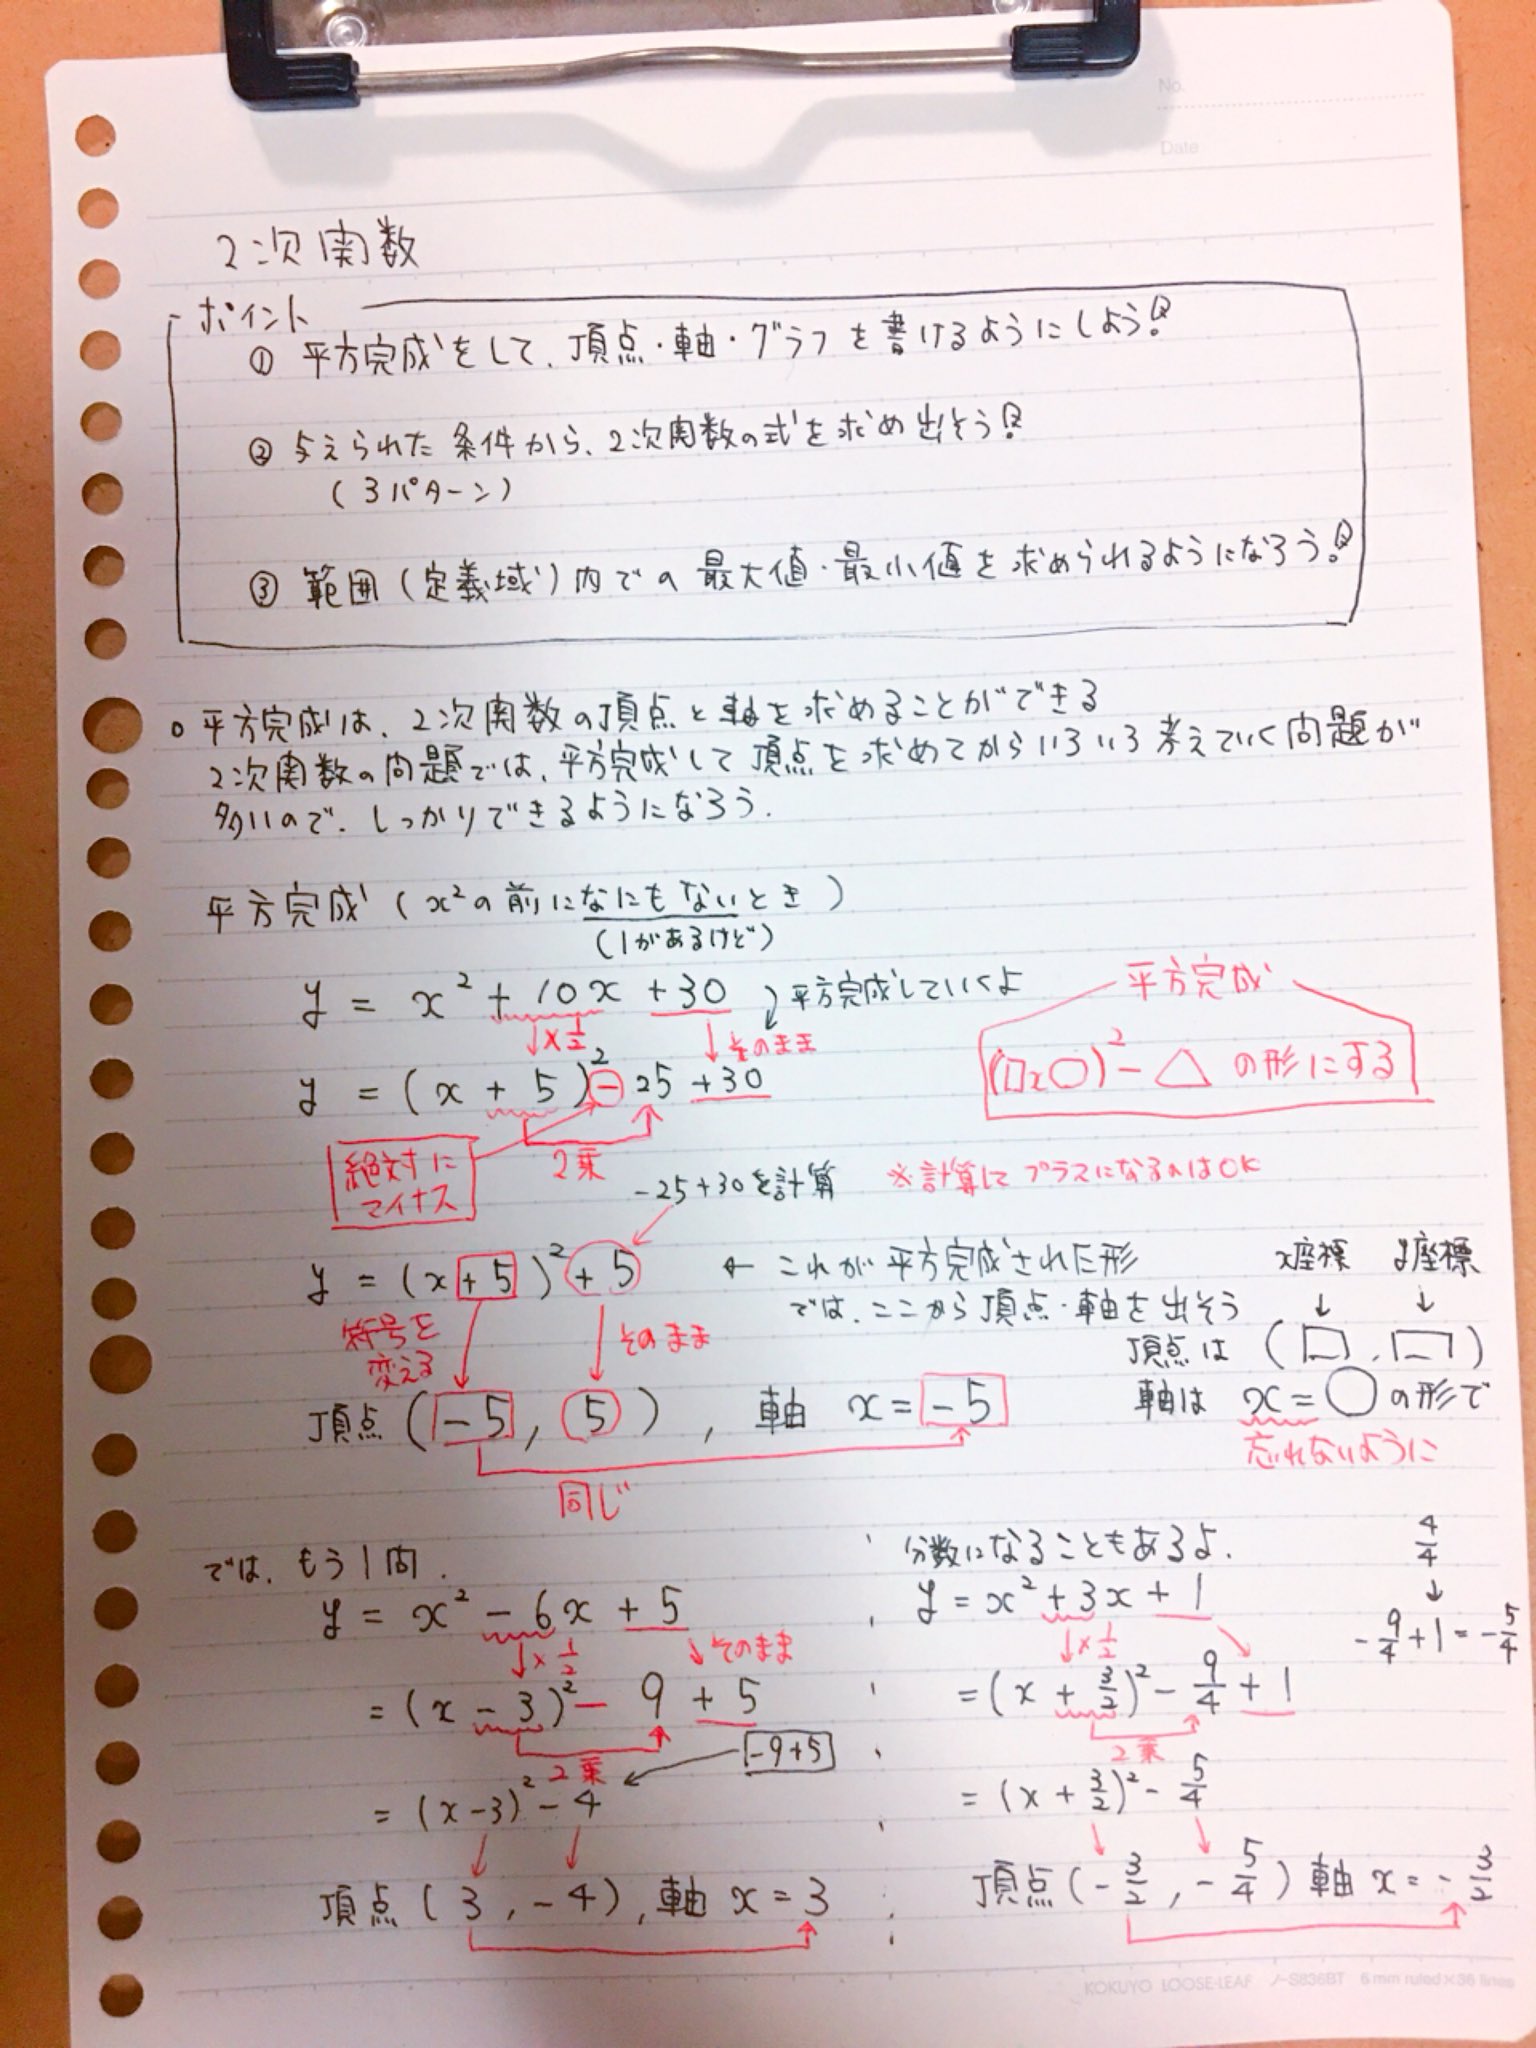 No.
Date
2次関数
ポイント
① 平方完成をして、頂点・軸・グラフを書けるようにしよう!
② 与えられた条件から、2次関数の式を求め出そう!
(3パターン)
③ 範囲(定義域)内での最大値・最小値を求められるようになろう!
○ 平方完成は、2次関数の頂点と軸を求めることができる
2次関数の問題では、平方完成して頂点を求めてからいろいろ考えていく問題が
多いので、しっかりできるようになろう.
平方完成(x²の前になにもないとき)
(1があるけど)
y = x² + 10x + 30 平方完成していくよ
×1/2 そのまま
y = (x + 5)² - 25 + 30
2乗
絶対に
マイナス
平方完成
(□x○)² - △ の形にする
-25+30を計算 ※計算してプラスになるのはOK
y = (x + 5)² + 5 ← これが平方完成された形
では、ここから頂点・軸を出そう
符号を
変える
そのまま
x座標 y座標
↓ ↓
頂点は (□, □)
軸は x = ○ の形で
忘れないように
頂点 (-5, 5), 軸 x = -5
同じ
では、もう1問.
y = x² - 6x + 5
×1/2 そのまま
= (x - 3)² - 9 + 5
2乗 -9+5
= (x-3)² - 4
頂点 (3, -4), 軸 x = 3
分数になることもあるよ.
y = x² + 3x + 1
×1/2
= (x + 3/2)² - 9/4 + 1
2乗
= (x + 3/2)² - 5/4
頂点 (-3/2, -5/4) 軸 x = -3/2
4/4
↓
-9/4 + 1 = -5/4
KOKUYO LOOSE-LEAF ノ-S836BT 6mm ruled×36 lines